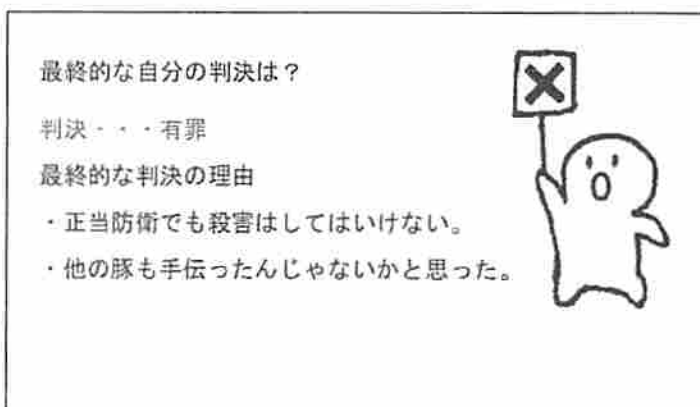 最終的な自分の判決は？
判決・・・有罪
最終的な判決の理由
・正当防衛でも殺害はしてはいけない。
・他の豚も手伝ったんじゃないかと思った。